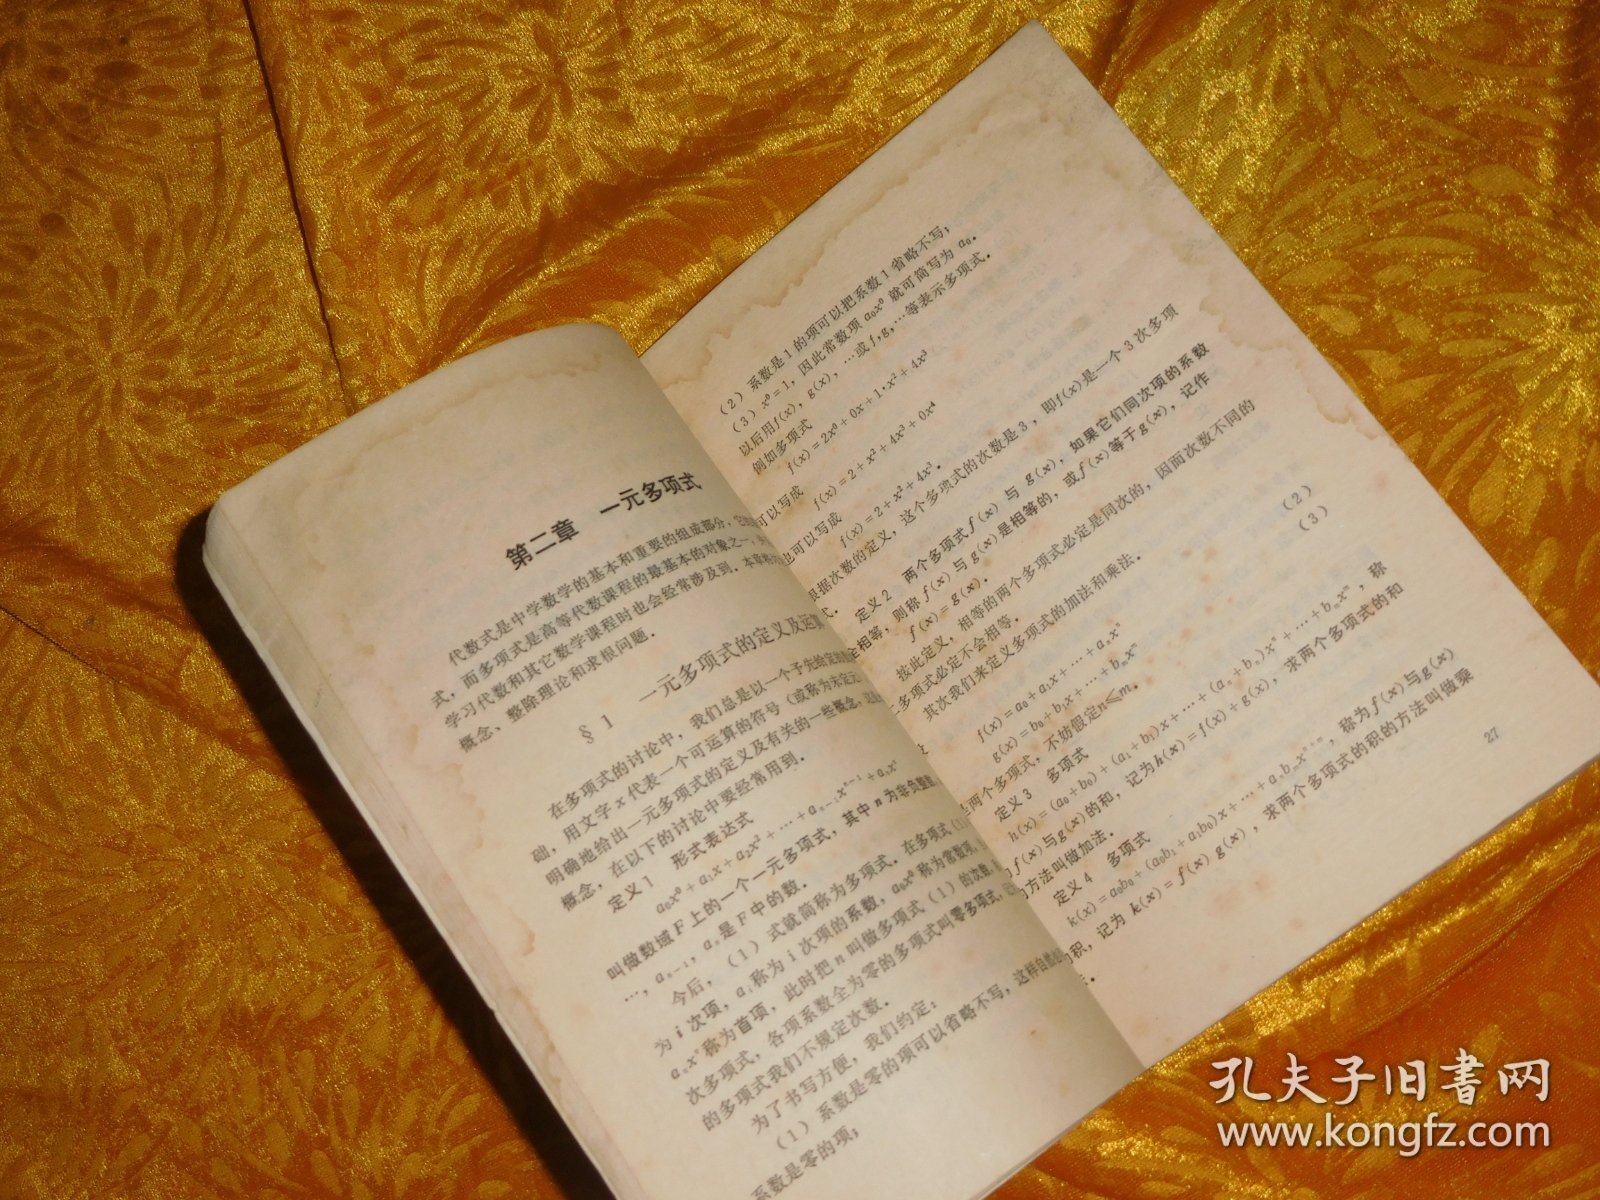 第二章 一元多项式
代数式是中学数学的基本和重要的组成部分，它
式，而多项式是高等代数课程的最基本的对象之一，
学习代数和其它数学课程时也会经常涉及到．本章
概念、整除理论和求根问题．
§1 一元多项式的定义及运算
在多项式的讨论中，我们总是以一个予先给定的
础，用文字x代表一个可运算的符号（或称为未定元
明确地给出一元多项式的定义及有关的一些概念，这
概念，在以下的讨论中要经常用到．
定义1 形式表达式
a₀x⁰＋a₁x＋a₂x²＋…＋aₙ₋₁xⁿ⁻¹＋aₙxⁿ
叫做数域F上的一个一元多项式，其中n为非负整数
…，aₙ₋₁，aₙ是F中的数．
今后，（1）式就简称为多项式．在多项式（1）
为i次项，aᵢ称为i次项的系数，a₀x⁰称为常数项，
aₙxⁿ称为首项，此时把n叫做多项式（1）的次数，
次多项式，各项系数全为零的多项式叫零多项式，
的多项式我们不规定次数．
为了书写方便，我们约定：
（1）系数是零的项可以省略不写，这样自
系数是零的项；
（2）系数是1的项可以把系数1省略不写；
（3）x⁰＝1，因此常数项a₀x⁰就可简写为a₀．
以后用f(x)，g(x)，…或f,g,…等表示多项式．
例如多项式
f(x)＝2x⁰＋0x＋1·x²＋4x³
可以写成
f(x)＝2＋x²＋4x³＋0x⁴
也可以写成
f(x)＝2＋x²＋4x³．
根据次数的定义，这个多项式的次数是3，即f(x)是一个3次多项
式．
定义2 两个多项式f(x)与g(x)，如果它们同次项的系数
全相等，则称f(x)与g(x)是相等的，或f(x)等于g(x)，记作
f(x)＝g(x)．
按此定义，相等的两个多项式必定是同次的，因而次数不同的
二多项式必定不会相等．
其次我们来定义多项式的加法和乘法．
f(x)＝a₀＋a₁x＋…＋aₙxⁿ （2）
g(x)＝b₀＋b₁x＋…＋bₘxᵐ （3）
是两个多项式，不妨假定n≤m．
定义3 多项式
h(x)＝(a₀＋b₀)＋(a₁＋b₁)x＋…＋(aₙ＋bₙ)xⁿ＋…＋bₘxᵐ，称
为f(x)与g(x)的和，记为h(x)＝f(x)＋g(x)，求两个多项式的和
的方法叫做加法．
定义4 多项式
k(x)＝a₀b₀＋(a₀b₁＋a₁b₀)x＋…＋aₙbₘxⁿ⁺ᵐ，称为f(x)与g(x)
的积，记为k(x)＝f(x)g(x)，求两个多项式的积的方法叫做乘
27
孔夫子旧書网
www.kongfz.com